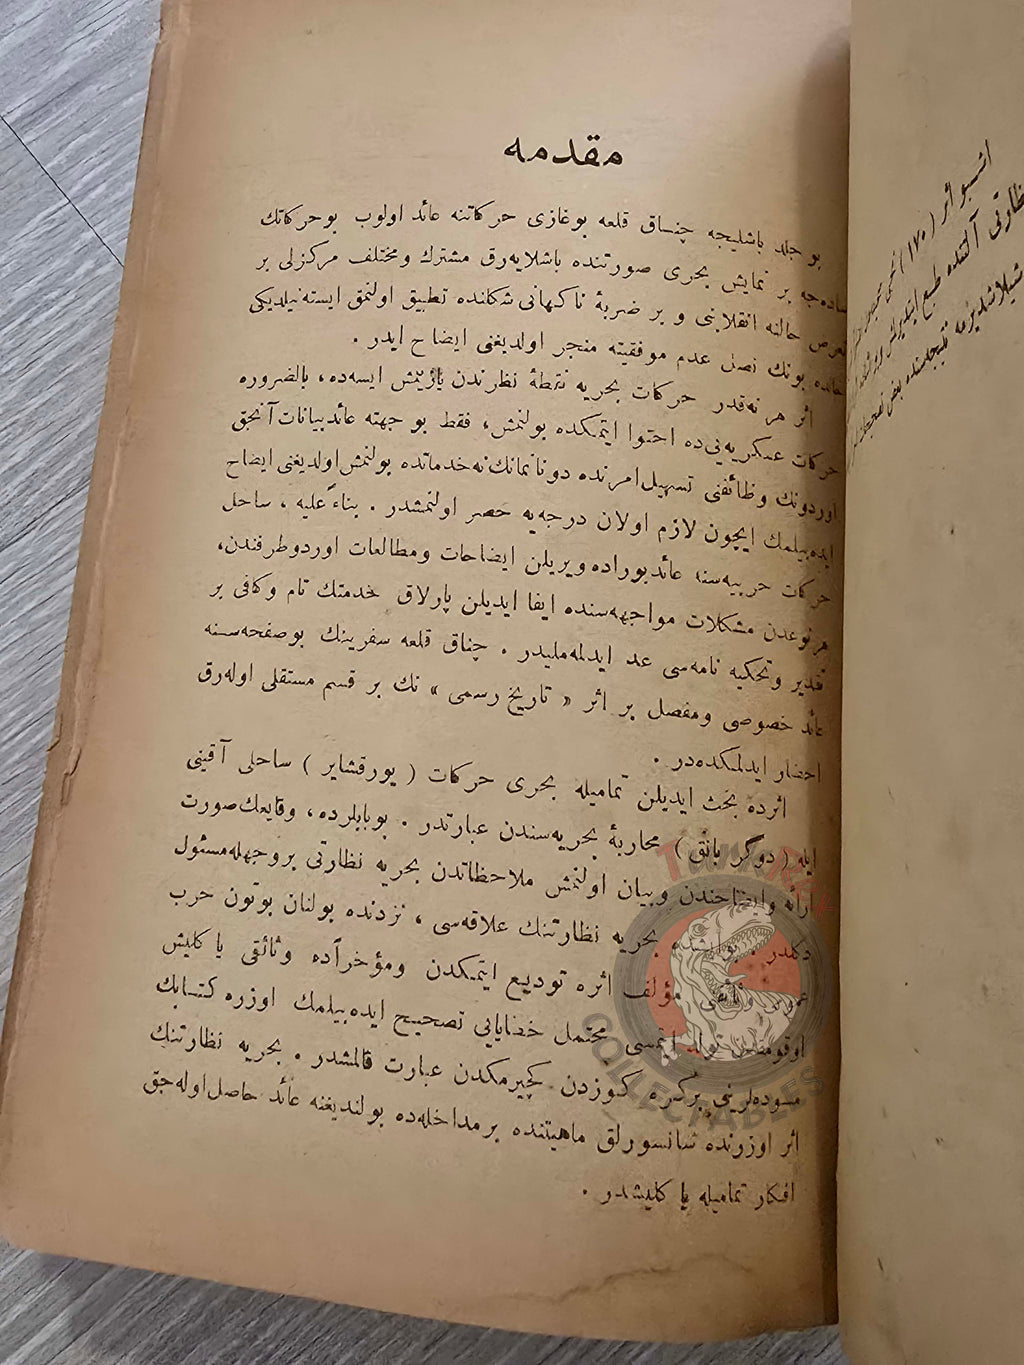 مقدمه
بو جلد باشلیجه چناق قلعه بوغازی حركاتنه عائد اولوب بو حركاتك
ساده‌جه بر نمایش بحری صورتنده باشلایه‌رق مشترك و مختلف مركزلی بر
تعرض حالنه انقلابنی و بر ضربهٔ ناكهانی شكلنده تطبیق اولنمق ایسته‌نیلدیكی
حالده بونك نصل عدم موفقیته منجر اولدیغنی ایضاح ایدر .
اثر هر نه‌قدر حركات بحریه نقطهٔ نظرندن یازیلمش ایسه‌ده، بالضروره
حركات عسكریه‌یی‌ده احتوا ایتمكده بولنمش، فقط بو جهته عائد بیانات آنجق
اوردونك وظائفنی تسهیل امرنده دونانمانك نه خدماتده بولنمش اولدیغنی ایضاح
ایده‌بیلمك ایچون لازم اولان درجه‌یه حصر اولنمشدر . بناءً علیه ، ساحل
حركات حربیه‌سنه عائد بوراده ویریلن ایضاحات و مطالعات اوردو طرفندن،
هر نوعدن مشكلات مواجهه‌سنده ایفا ایدیلن پارلاق خدمتك تام و كافی بر
تقدیر و تحكیه نامه‌سی عد ایدلمه‌ملیدر . چناق قلعه سفرینك بو صفحه‌سنه
عائد خصوصی و مفصل بر اثر « تاریخ رسمی » نك بر قسم مستقلی اوله‌رق
احضار ایدلمكده‌در .
اثرده بحث ایدیلن تمامیله بحری حركات ( یورقشایر ) ساحلی آقینی
ایله ( دوگر بانق ) محاربهٔ بحریه‌سندن عبارتدر . بو بابلرده، وقایعك صورت
ارائه و ایضاحندن و بیان اولنمش ملاحظاتدن بحریه نظارتی بر وجهله مسئول
دكلدر . بحریه نظارتنك علاقه‌سی ، نزدنده بولنان بوتون حرب
مؤلف اثره تودیع ایتمكدن و مؤخراًده وثائقی یا كلیش
محتمل خطایایی تصحیح ایده‌بیلمك اوزره كتابك
مسوده‌لرینی بر كره كوزدن كچیرمكدن عبارت قالمشدر . بحریه نظارتنك
اثر اوزرنده سانسورلق ماهیتنده بر مداخله‌ده بولندیغنه عائد حاصل اوله‌جق
افكار تمامیله یا كلیشدر .
اشبو اثر ( ١٧٠ )
نظارتی آلتنده طبع ایتدیرلمش
نتیجه‌سنده بعض
TankRex
COLLECTABLES